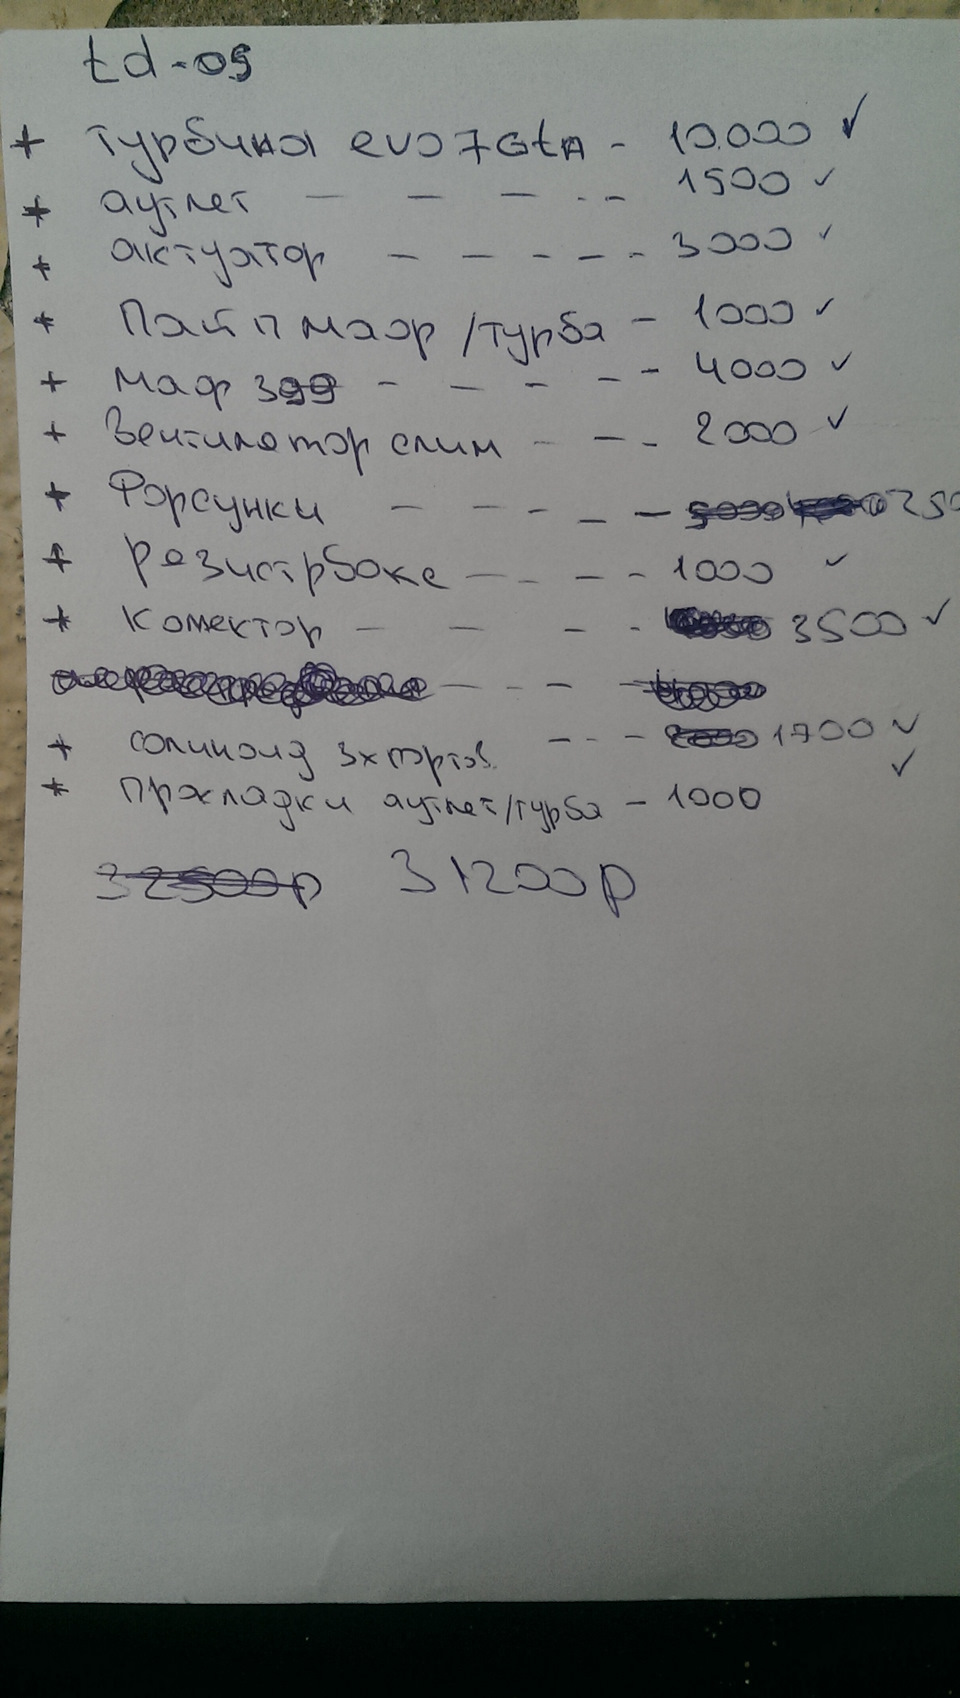 td-05
+ турбина evo7GtA - 10.000 ✓
+ аутлет - - - - - 1500 ✓
+ актуатор - - - - - 3000 ✓
+ Пайп маф/турба - 1000 ✓
+ маф 399 - - - - - 4000 ✓
+ Вентилятор слим - - - 2000 ✓
+ Форсунки - - - - - 5000 250
+ резистрбокс - - - - 1000 ✓
+ Колектор - - - - 3500 ✓
+ солиноид 3х портов - - - 2000 1700 ✓
+ прокладки аутлет/турба - 1000 ✓
32500р 31200р